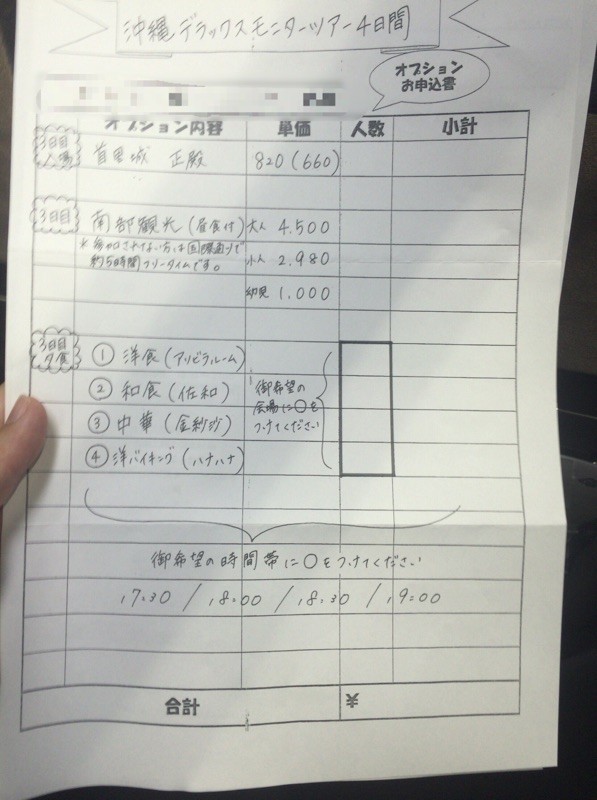 沖縄デラックスモニターツアー4日間
オプション
お申込書
オプション内容 単価 人数 小計
3日目
入場
首里城 正殿 820(660)
3日目
南部観光(昼食付) 大人 4.500
*参加されない方は国際通りで
約5時間フリータイムです。
小人 2.980
幼児 1.000
3日目
夕食
① 洋食(アリビラルーム)
② 和食(佐和)
③ 中華(金紗沙)
④ 洋バイキング(ハナハナ)
御希望の
会場に○を
つけてください
御希望の時間帯に○をつけてください
17:30 / 18:00 / 18:30 / 19:00
合計 ¥